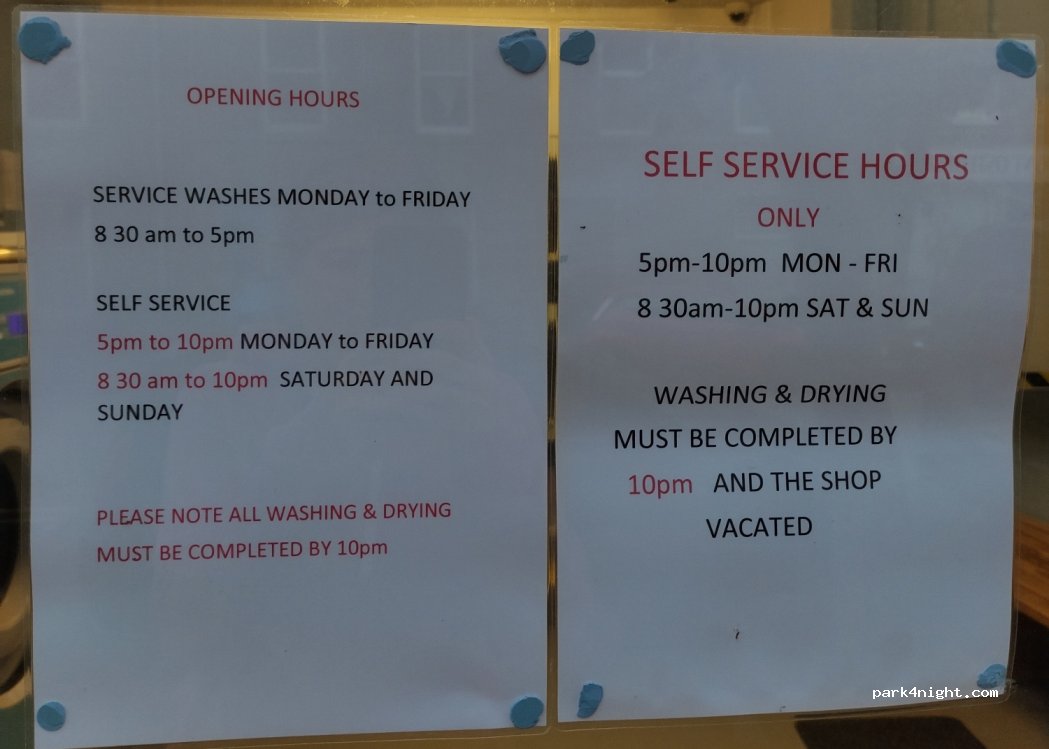 OPENING HOURS
SERVICE WASHES MONDAY to FRIDAY
8 30 am to 5pm
SELF SERVICE
5pm to 10pm MONDAY to FRIDAY
8 30 am to 10pm SATURDAY AND
SUNDAY
PLEASE NOTE ALL WASHING & DRYING
MUST BE COMPLETED BY 10pm
SELF SERVICE HOURS
ONLY
5pm-10pm MON - FRI
8 30am-10pm SAT & SUN
WASHING & DRYING
MUST BE COMPLETED BY
10pm AND THE SHOP
VACATED
park4night.com